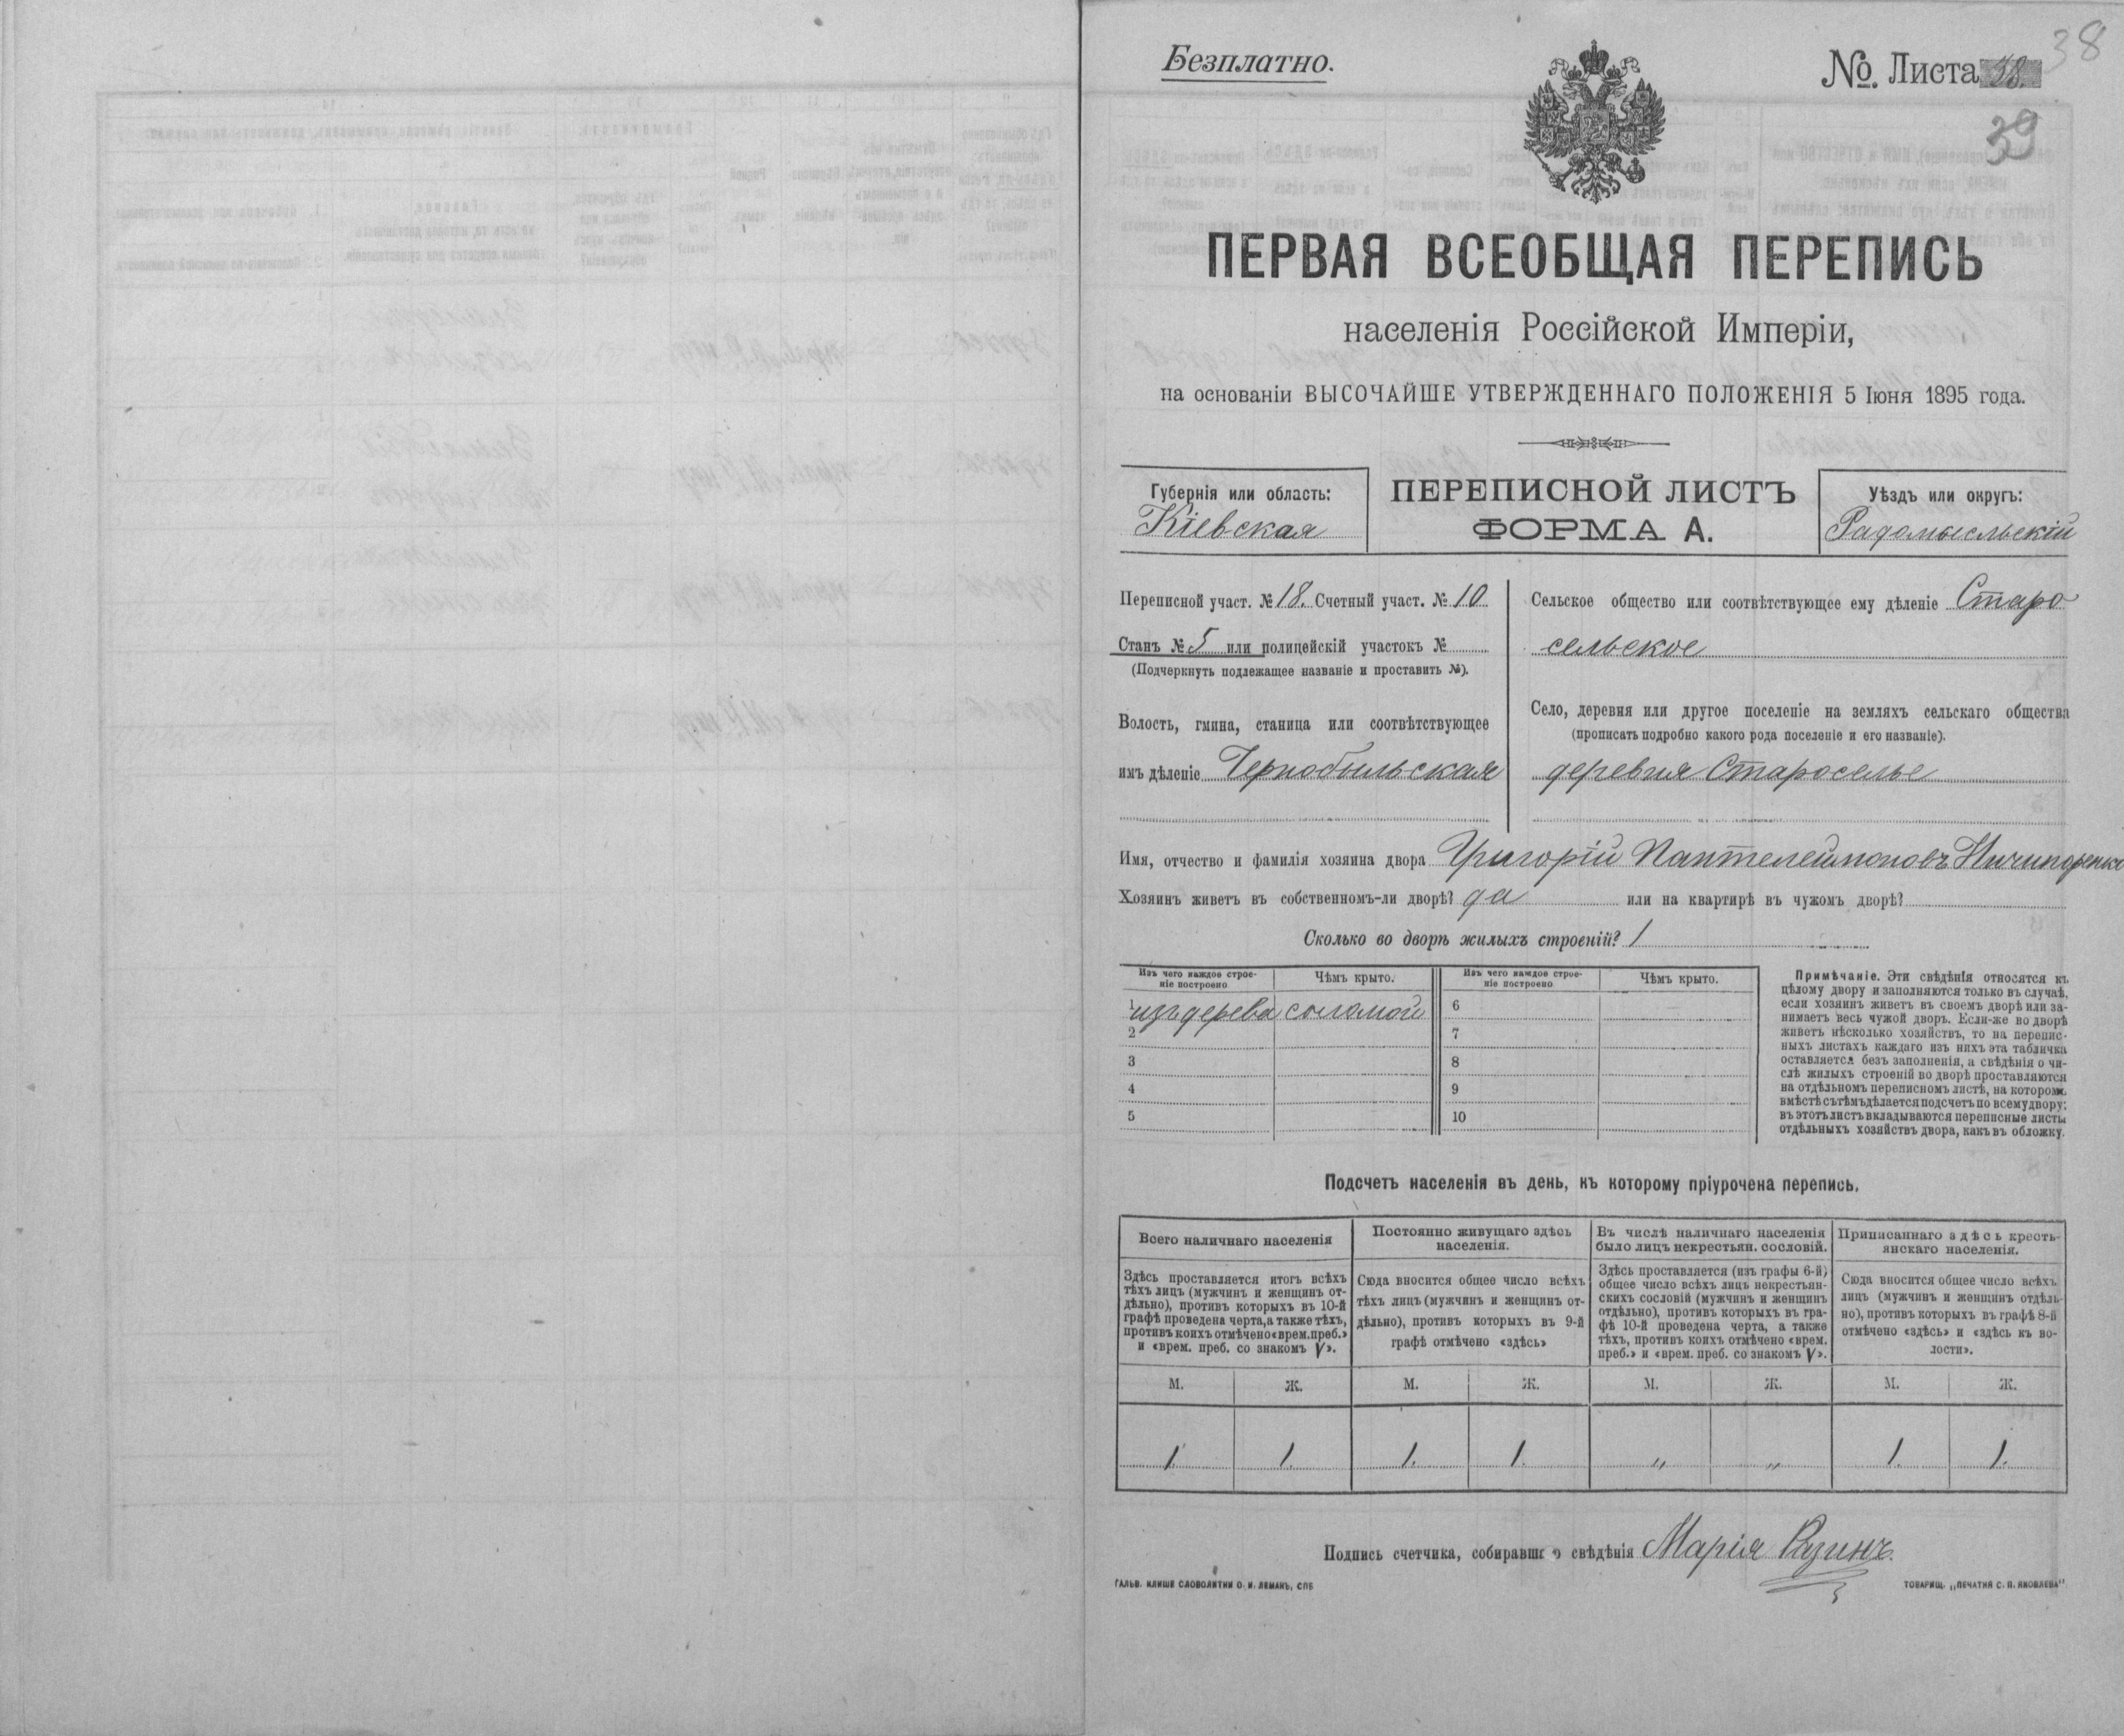 Безплатно.
No. Листа 38.
38
39
ПЕРВАЯ ВСЕОБЩАЯ ПЕРЕПИСЬ
населенія Россійской Имперіи,
на основаніи ВЫСОЧАЙШЕ УТВЕРЖДЕННАГО ПОЛОЖЕНІЯ 5 Іюня 1895 года.
Губернія или область:
Кіевская
ПЕРЕПИСНОЙ ЛИСТЪ
ФОРМА А.
Уѣздъ или округъ:
Радомысльскій
Переписной участ. № 18. Счетный участ. № 10
Станъ № 5 или полицейскій участокъ №
(Подчеркнуть подлежащее названіе и проставить №).
Волость, гмина, станица или соотвѣтствующее
имъ дѣленіе Чернобыльская
Сельское общество или соотвѣтствующее ему дѣленіе Старо
сельское
Село, деревня или другое поселеніе на земляхъ сельскаго общества
(прописать подробно какого рода поселеніе и его названіе).
деревня Староселье
Имя, отчество и фамилія хозяина двора Григорій Пантелеймоновъ Ничипоренко
Хозяинъ живетъ въ собственномъ-ли дворѣ? да или на квартирѣ въ чужомъ дворѣ?
Сколько во дворѣ жилыхъ строеній? 1
Изъ чего каждое строе-
ніе построено
Чѣмъ крыто.
Изъ чего каждое строе-
ніе построено
Чѣмъ крыто.
1 изъ дерева соломой 6
2 7
3 8
4 9
5 10
Примѣчаніе. Эти свѣдѣнія относятся къ
цѣлому двору и заполняются только въ случаѣ,
если хозяинъ живетъ въ своемъ дворѣ или за-
нимаетъ весь чужой дворъ. Если-же во дворѣ
живетъ нѣсколько хозяйствъ, то на перепис-
ныхъ листахъ каждаго изъ нихъ эта табличка
оставляется безъ заполненія, а свѣдѣнія о чи-
слѣ жилыхъ строеній во дворѣ проставляются
на отдѣльномъ переписномъ листѣ, на которомъ
вмѣстѣ съ тѣмъ дѣлается подсчетъ по всему двору;
въ этотъ листъ вкладываются переписные листы
отдѣльныхъ хозяйствъ двора, какъ въ обложку.
Подсчетъ населенія въ день, къ которому пріурочена перепись.
Всего наличнаго населенія
Здѣсь проставляется итогъ всѣхъ
тѣхъ лицъ (мужчинъ и женщинъ от-
дѣльно), противъ которыхъ въ 10-й
графѣ проведена черта, а также тѣхъ,
противъ коихъ отмѣчено «врем. преб.»
и «врем. преб. со знакомъ V».
Постоянно живущаго здѣсь
населенія.
Сюда вносится общее число всѣхъ
тѣхъ лицъ (мужчинъ и женщинъ от-
дѣльно), противъ которыхъ въ 9-й
графѣ отмѣчено «здѣсь»
Въ числѣ наличнаго населенія
было лицъ некрестьян. сословій.
Здѣсь проставляется (изъ графы 6-й)
общее число всѣхъ лицъ некрестьян-
скихъ сословій (мужчинъ и женщинъ
отдѣльно), противъ которыхъ въ гра-
фѣ 10-й проведена черта, а также
тѣхъ, противъ коихъ отмѣчено «врем.
преб.» и «врем. преб. со знакомъ V».
Приписаннаго здѣсь кресть-
янскаго населенія.
Сюда вносится общее число всѣхъ
лицъ (мужчинъ и женщинъ отдѣль-
но), противъ которыхъ въ графѣ 8-й
отмѣчено «здѣсь» и «здѣсь къ во-
лости».
М. Ж. М. Ж. М. Ж. М. Ж.
1 1. 1. 1. „ „ 1. 1.
Подпись счетчика, собиравшаго свѣдѣнія Марія
ГАЛЬВ. КЛИШЕ СЛОВОЛИТНИ О. И. ЛЕМАНЪ, СПБ
ТОВАРИЩ. „ПЕЧАТНЯ С. П. ЯКОВЛЕВА"